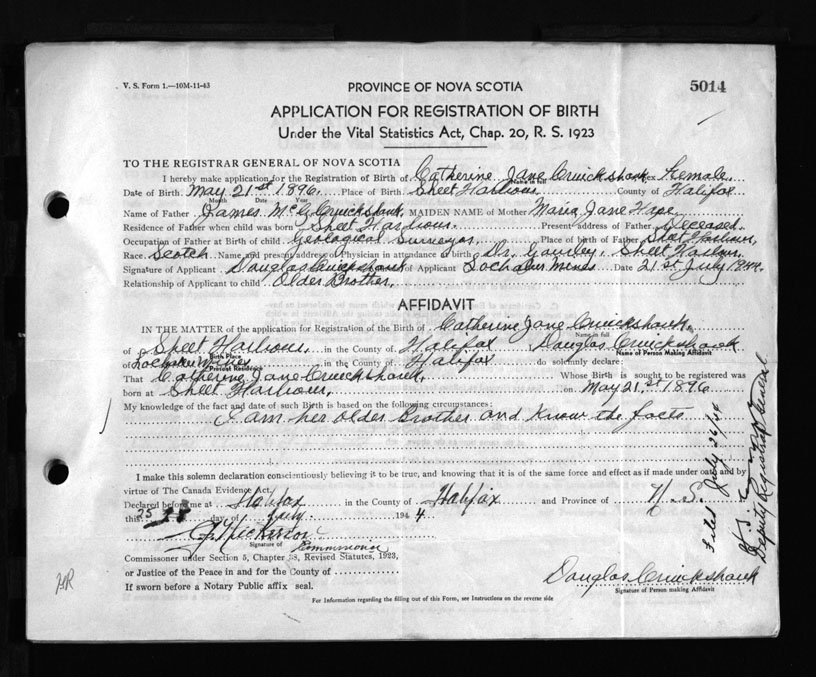 V. S. Form 1.—10M-11-43
PROVINCE OF NOVA SCOTIA
5014
APPLICATION FOR REGISTRATION OF BIRTH
Under the Vital Statistics Act, Chap. 20, R. S. 1923
TO THE REGISTRAR GENERAL OF NOVA SCOTIA
I hereby make application for the Registration of Birth of Catherine Jane Cruickshank Sex Female.
Name in full
Date of Birth May 21st 1896. Place of Birth Sheet Harbour County of Halifax
Month Date Year
Name of Father James McG. Cruickshank. MAIDEN NAME of Mother Maria Jane Hape
Residence of Father when child was born Sheet Harbour. Present address of Father Deceased.
Occupation of Father at Birth of child Geological Surveyor. Place of birth of Father Sheet Harbour.
Race Scotch Name and present address of Physician in attendance at birth Dr. Gourley. Sheet Harbour.
Signature of Applicant Douglas Cruickshank of Applicant Lochaber Mines Date 21st July 1944.
Relationship of Applicant to child Older Brother.
AFFIDAVIT
IN THE MATTER of the application for Registration of the Birth of Catherine Jane Cruickshank.
Name in full
of Sheet Harbour. in the County of Halifax Douglas Cruickshank
Birth Place Name of Person Making Affidavit
of Lochaber Mines in the County of Halifax do solemnly declare:
Present Residence
That Catherine Jane Cruickshank. Whose Birth is sought to be registered was
born at Sheet Harbour. on May 21st 1896
My knowledge of the fact and date of such Birth is based on the following circumstances:
I am her older Brother and know the facts
I make this solemn declaration conscientiously believing it to be true, and knowing that it is of the same force and effect as if made under oath and by
virtue of The Canada Evidence Act.
Declared before me at Halifax in the County of Halifax and Province of N. S.
this 25 day of July 1944
Signature of Commissioner
Commissioner under Section 5, Chapter 38, Revised Statutes, 1923,
or Justice of the Peace in and for the County of
If sworn before a Notary Public affix seal.
Douglas Cruickshank
Signature of Person making Affidavit
For Information regarding the filling out of this Form, see Instructions on the reverse side
Filed July 26/44
Deputy Registrar General
HR